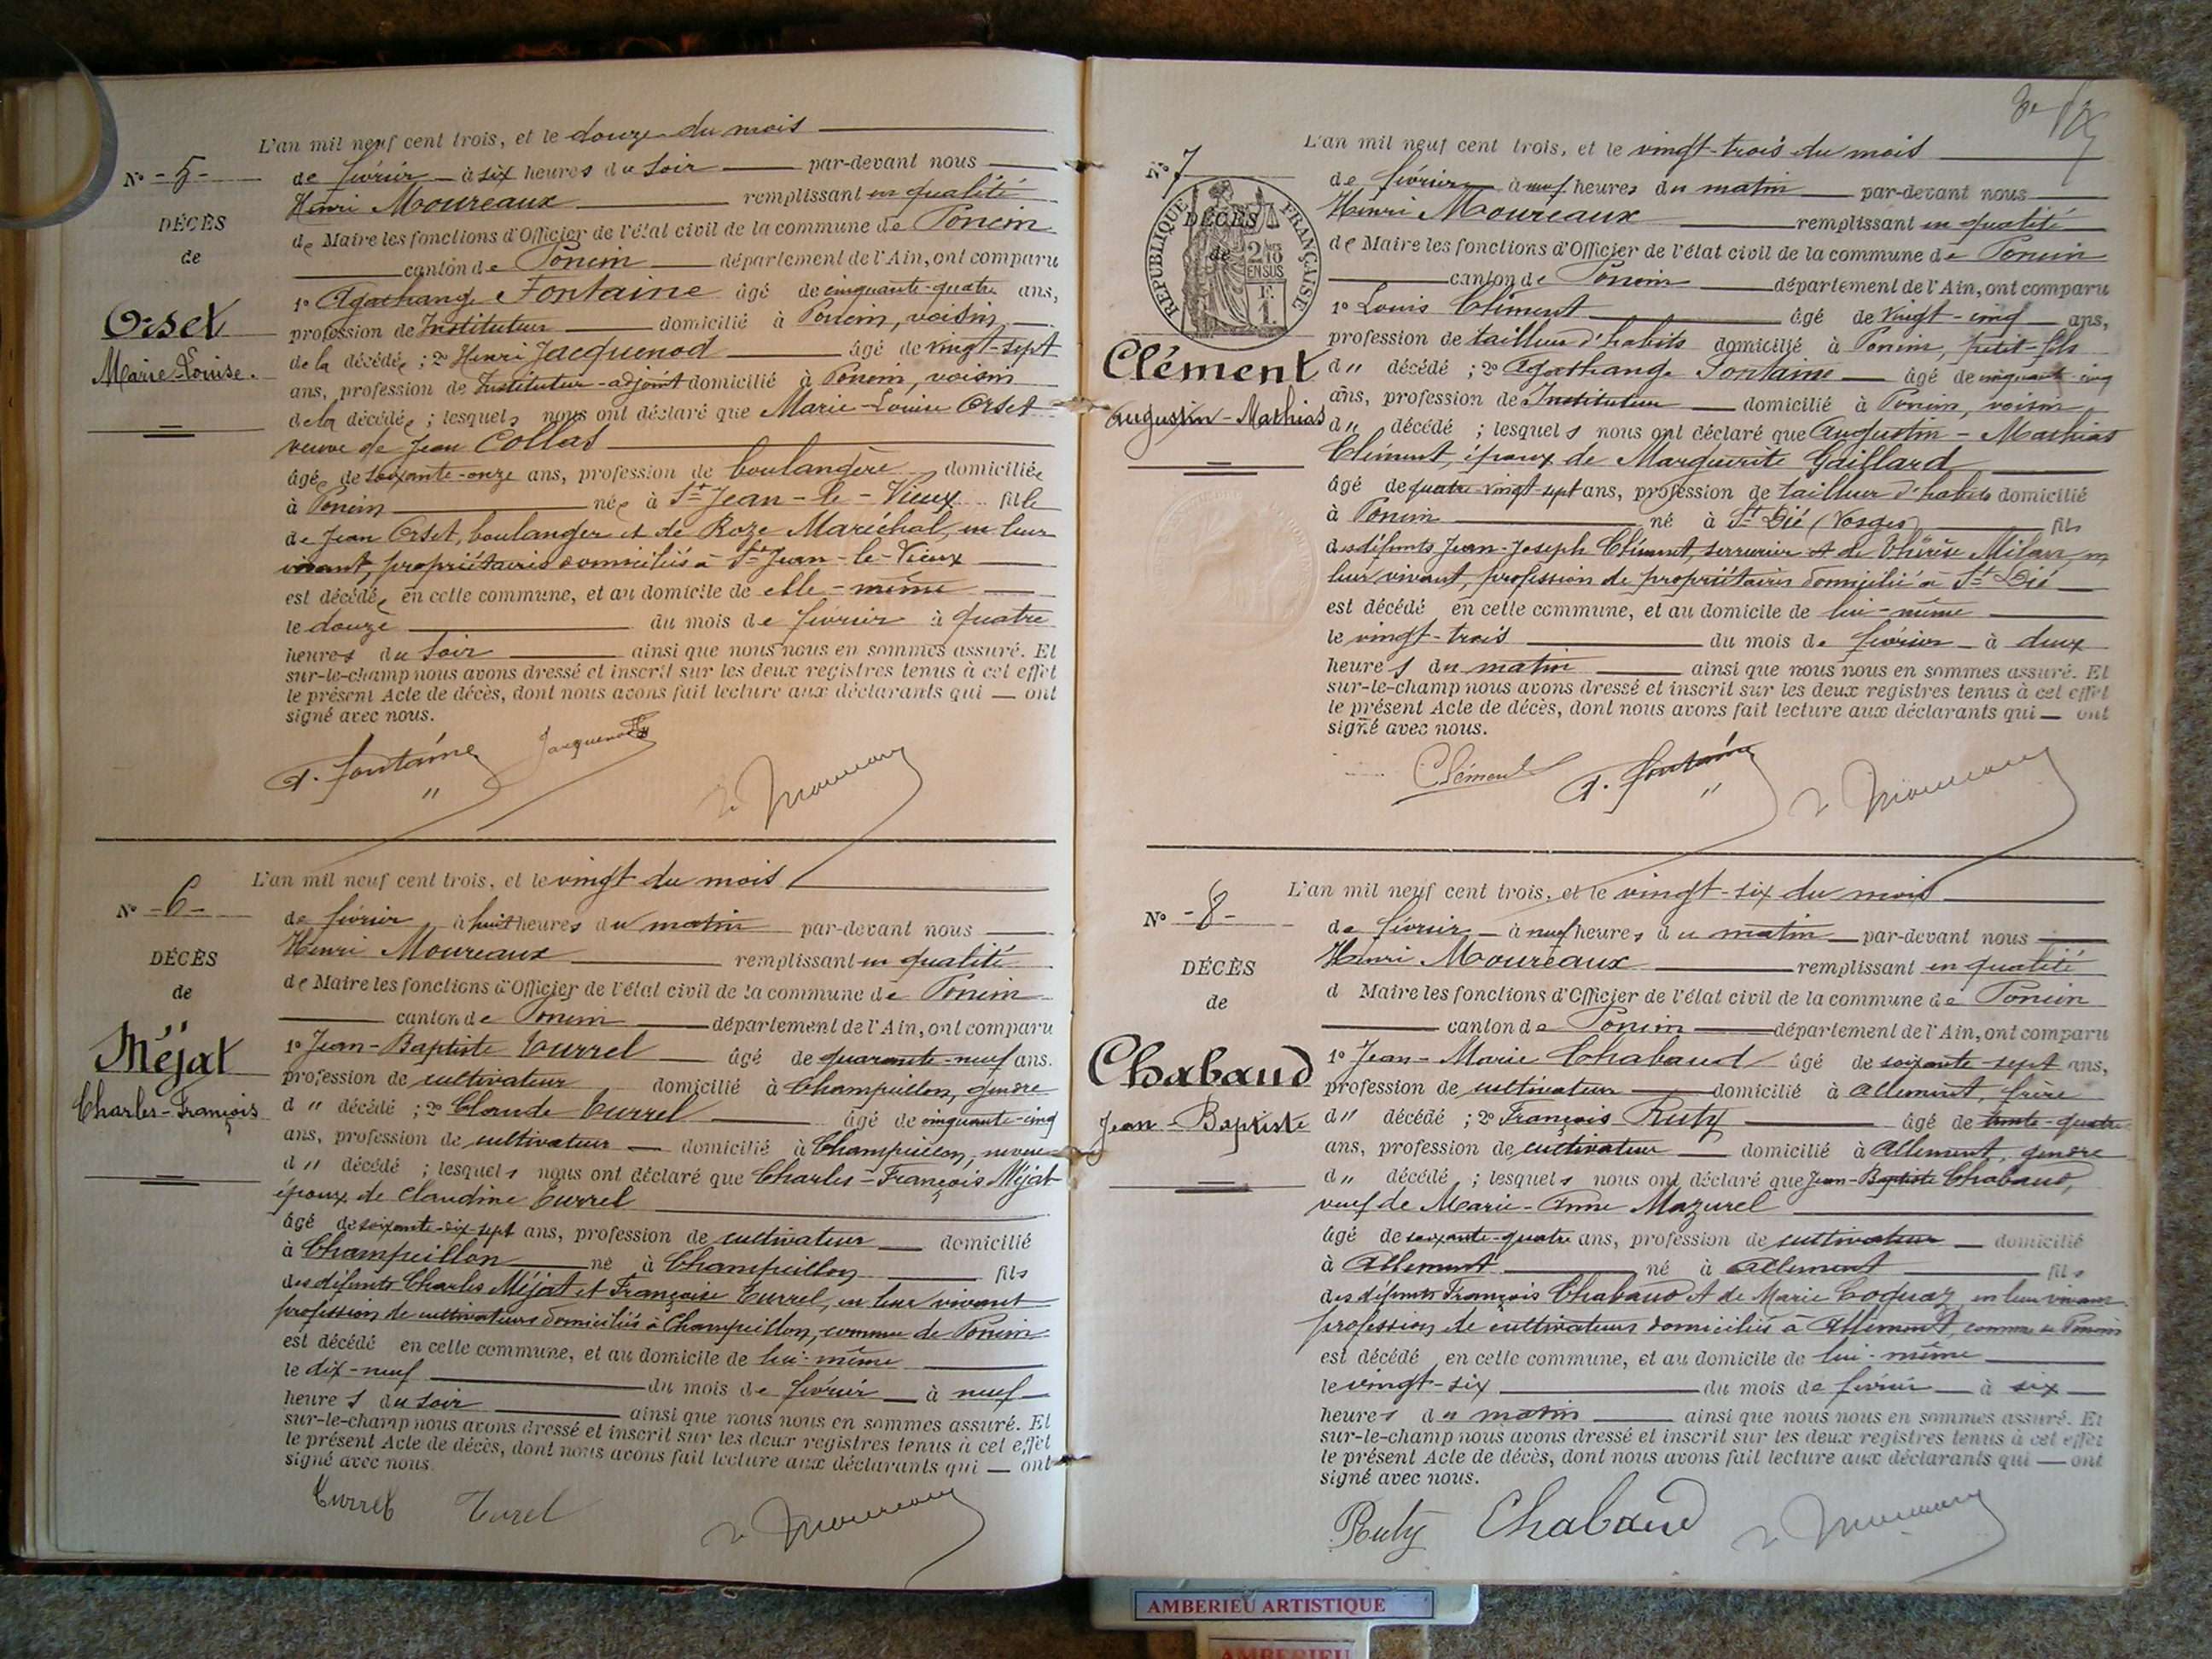 L'an mil neuf cent trois, et le douze du mois
N° - 5 - de février à six heures du soir par-devant nous
Henri Moureaux remplissant en qualité
DÉCÈS
de Maire les fonctions d'Officier de l'état civil de la commune de Poncin
de
canton de Poncin département de l'Ain, ont comparu
1° Agathange Fontaine âgé de cinquante-quatre ans,
Orset
profession de Instituteur domicilié à Poncin, voisin
de la décédée ; 2° Henri Jacquenod âgé de vingt-sept
Marie-Louise.
ans, profession de Instituteur-adjoint domicilié à Poncin, voisin
de la décédée ; lesquels nous ont déclaré que Marie-Louise Orset
veuve de Jean Collas
âgée de soixante-onze ans, profession de boulangère domiciliée
à Poncin née à St Jean-le-Vieux fille
de Jean Orset, boulanger et de Roze Maréchal, en leur
vivant, propriétaires domiciliés à St Jean-le-Vieux
est décédée en cette commune, et au domicile de elle-même
le douze du mois de février à quatre
heures du soir ainsi que nous nous en sommes assuré. Et
sur-le-champ nous avons dressé et inscrit sur les deux registres tenus à cet effet
le présent Acte de décès, dont nous avons fait lecture aux déclarants qui — ont
signé avec nous.
A. Fontaine Jacquenod H. Moureaux
L'an mil neuf cent trois, et le vingt du mois
N° - 6 - de février à huit heures du matin par-devant nous
Henri Moureaux remplissant en qualité
DÉCÈS
de Maire les fonctions d'Officier de l'état civil de la commune de Poncin
de
canton de Poncin département de l'Ain, ont comparu
1° Jean-Baptiste Turrel âgé de quarante-neuf ans.
Méjat
profession de cultivateur domicilié à Champeillon, gendre
Charles-François
d " décédé ; 2° Claude Turrel âgé de cinquante-cinq
ans, profession de cultivateur domicilié à Champeillon, neveu
d " décédé ; lesquels nous ont déclaré que Charles-François Méjat
époux de Claudine Turrel
âgé de soixante-dix-sept ans, profession de cultivateur domicilié
à Champeillon né à Champeillon fils
des défunts Charles Méjat et Françoise Turrel, en leur vivant
profession de cultivateurs domiciliés à Champeillon, commune de Poncin
est décédé en cette commune, et au domicile de lui-même
le dix-neuf du mois de février à neuf
heures du soir ainsi que nous nous en sommes assuré. Et
sur-le-champ nous avons dressé et inscrit sur les deux registres tenus à cet effet
le présent Acte de décès, dont nous avons fait lecture aux déclarants qui — ont
signé avec nous.
Turrel Turel H. Moureaux
L'an mil neuf cent trois, et le vingt-trois du mois
N° 7 de février à neuf heures du matin par-devant nous
Henri Moureaux remplissant en qualité
RÉPUBLIQUE FRANÇAISE
DÉCÈS
de
2/10 EN SUS
F. 1.
de Maire les fonctions d'Officier de l'état civil de la commune de Poncin
canton de Poncin département de l'Ain, ont comparu
1° Louis Clément âgé de vingt-cinq ans,
profession de tailleur d'habits domicilié à Poncin, petit-fils
Clément
d " décédé ; 2° Agathange Fontaine âgé de cinquante-cinq
ans, profession de Instituteur domicilié à Poncin, voisin
Augustin-Mathias
d " décédé ; lesquels nous ont déclaré que Augustin-Mathias
Clément, époux de Marguerite Gaillard
âgé de quatre-vingt-sept ans, profession de tailleur d'habits domicilié
à Poncin né à St Dié (Vosges) fils
des défunts Jean-Joseph Clément, serrurier et de Thérèse Milan, en
leur vivant, profession de propriétaires domicilié à St Dié
est décédé en cette commune, et au domicile de lui-même
le vingt-trois du mois de février à deux
heures du matin ainsi que nous nous en sommes assuré. Et
sur-le-champ nous avons dressé et inscrit sur les deux registres tenus à cet effet
le présent Acte de décès, dont nous avons fait lecture aux déclarants qui — ont
signé avec nous.
Clément A. Fontaine H. Moureaux
L'an mil neuf cent trois, et le vingt-six du mois
N° - 8 - de février à neuf heures du matin par-devant nous
Henri Moureaux remplissant en qualité
DÉCÈS
d Maire les fonctions d'Officier de l'état civil de la commune de Poncin
de
canton de Poncin département de l'Ain, ont comparu
1° Jean-Marie Chabaud âgé de soixante-sept ans,
Chabaud
profession de cultivateur domicilié à Allement, frère
Jean-Baptiste
d " décédé ; 2° François Ruty âgé de trente-quatre
ans, profession de cultivateur domicilié à Allement, gendre
d " décédé ; lesquels nous ont déclaré que Jean-Baptiste Chabaud,
veuf de Marie-Anne Mazurel
âgé de soixante-quatre ans, profession de cultivateur domicilié
à Allement né à Allement fils
des défunts François Chabaud et de Marie Coquaz en leur vivant
profession de cultivateurs domiciliés à Allement, commune de Poncin
est décédé en cette commune, et au domicile de lui-même
le vingt-six du mois de février à six
heures du matin ainsi que nous nous en sommes assuré. Et
sur-le-champ nous avons dressé et inscrit sur les deux registres tenus à cet effet
le présent Acte de décès, dont nous avons fait lecture aux déclarants qui — ont
signé avec nous.
Ruty Chabaud H. Moureaux
AMBERIEU ARTISTIQUE
AMBERIEU